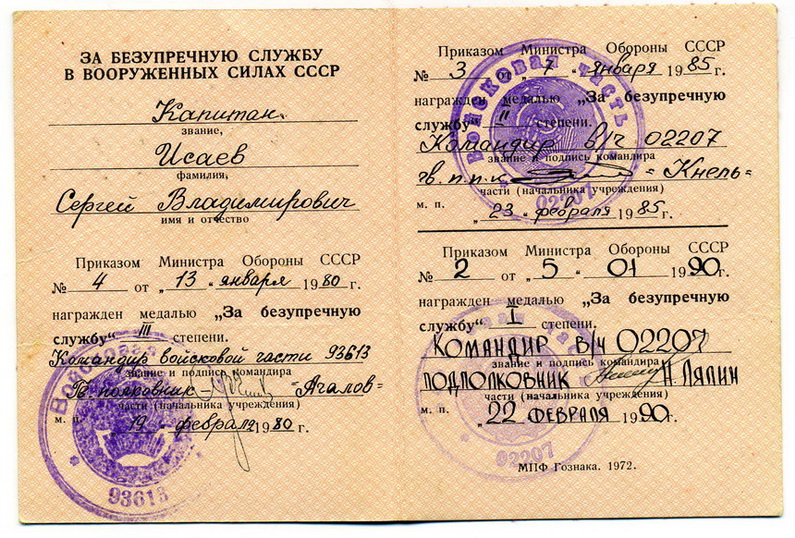 ЗА БЕЗУПРЕЧНУЮ СЛУЖБУ
В ВООРУЖЕННЫХ СИЛАХ СССР
Капитан
звание,
Исаев
фамилия,
Сергей Владимирович
имя и отчество
Приказом Министра Обороны СССР
№ 4 от „13 “ января 1980 г.
награжден медалью „За безупречную
службу“ III степени.
Командир войсковой части 93613
звание и подпись командира
=Агалов=
части (начальника учреждения)
м. п. „19 “ февраля 1980 г.
Войсковая
93613
Приказом Министра Обороны СССР
№ 3 от „7 “ января 1985 г.
награжден медалью „За безупречную
службу“ II степени.
Командир в/ч 02207
звание и подпись командира
гв. п.п.к =Кнель=
части (начальника учреждения)
м. п. „23 “ февраля 1985 г.
Войсковая часть
02207
Приказом Министра Обороны СССР
№ 2 от „5 “ 01 1990 г.
награжден медалью „За безупречную
службу“ I степени.
КОМАНДИР В/Ч 02207
звание и подпись командира
ПОДПОЛКОВНИК Н. Ляпин
части (начальника учреждения)
м. п. „22 “ ФЕВРАЛЯ 1990 г.
02207
МПФ Гознака. 1972.